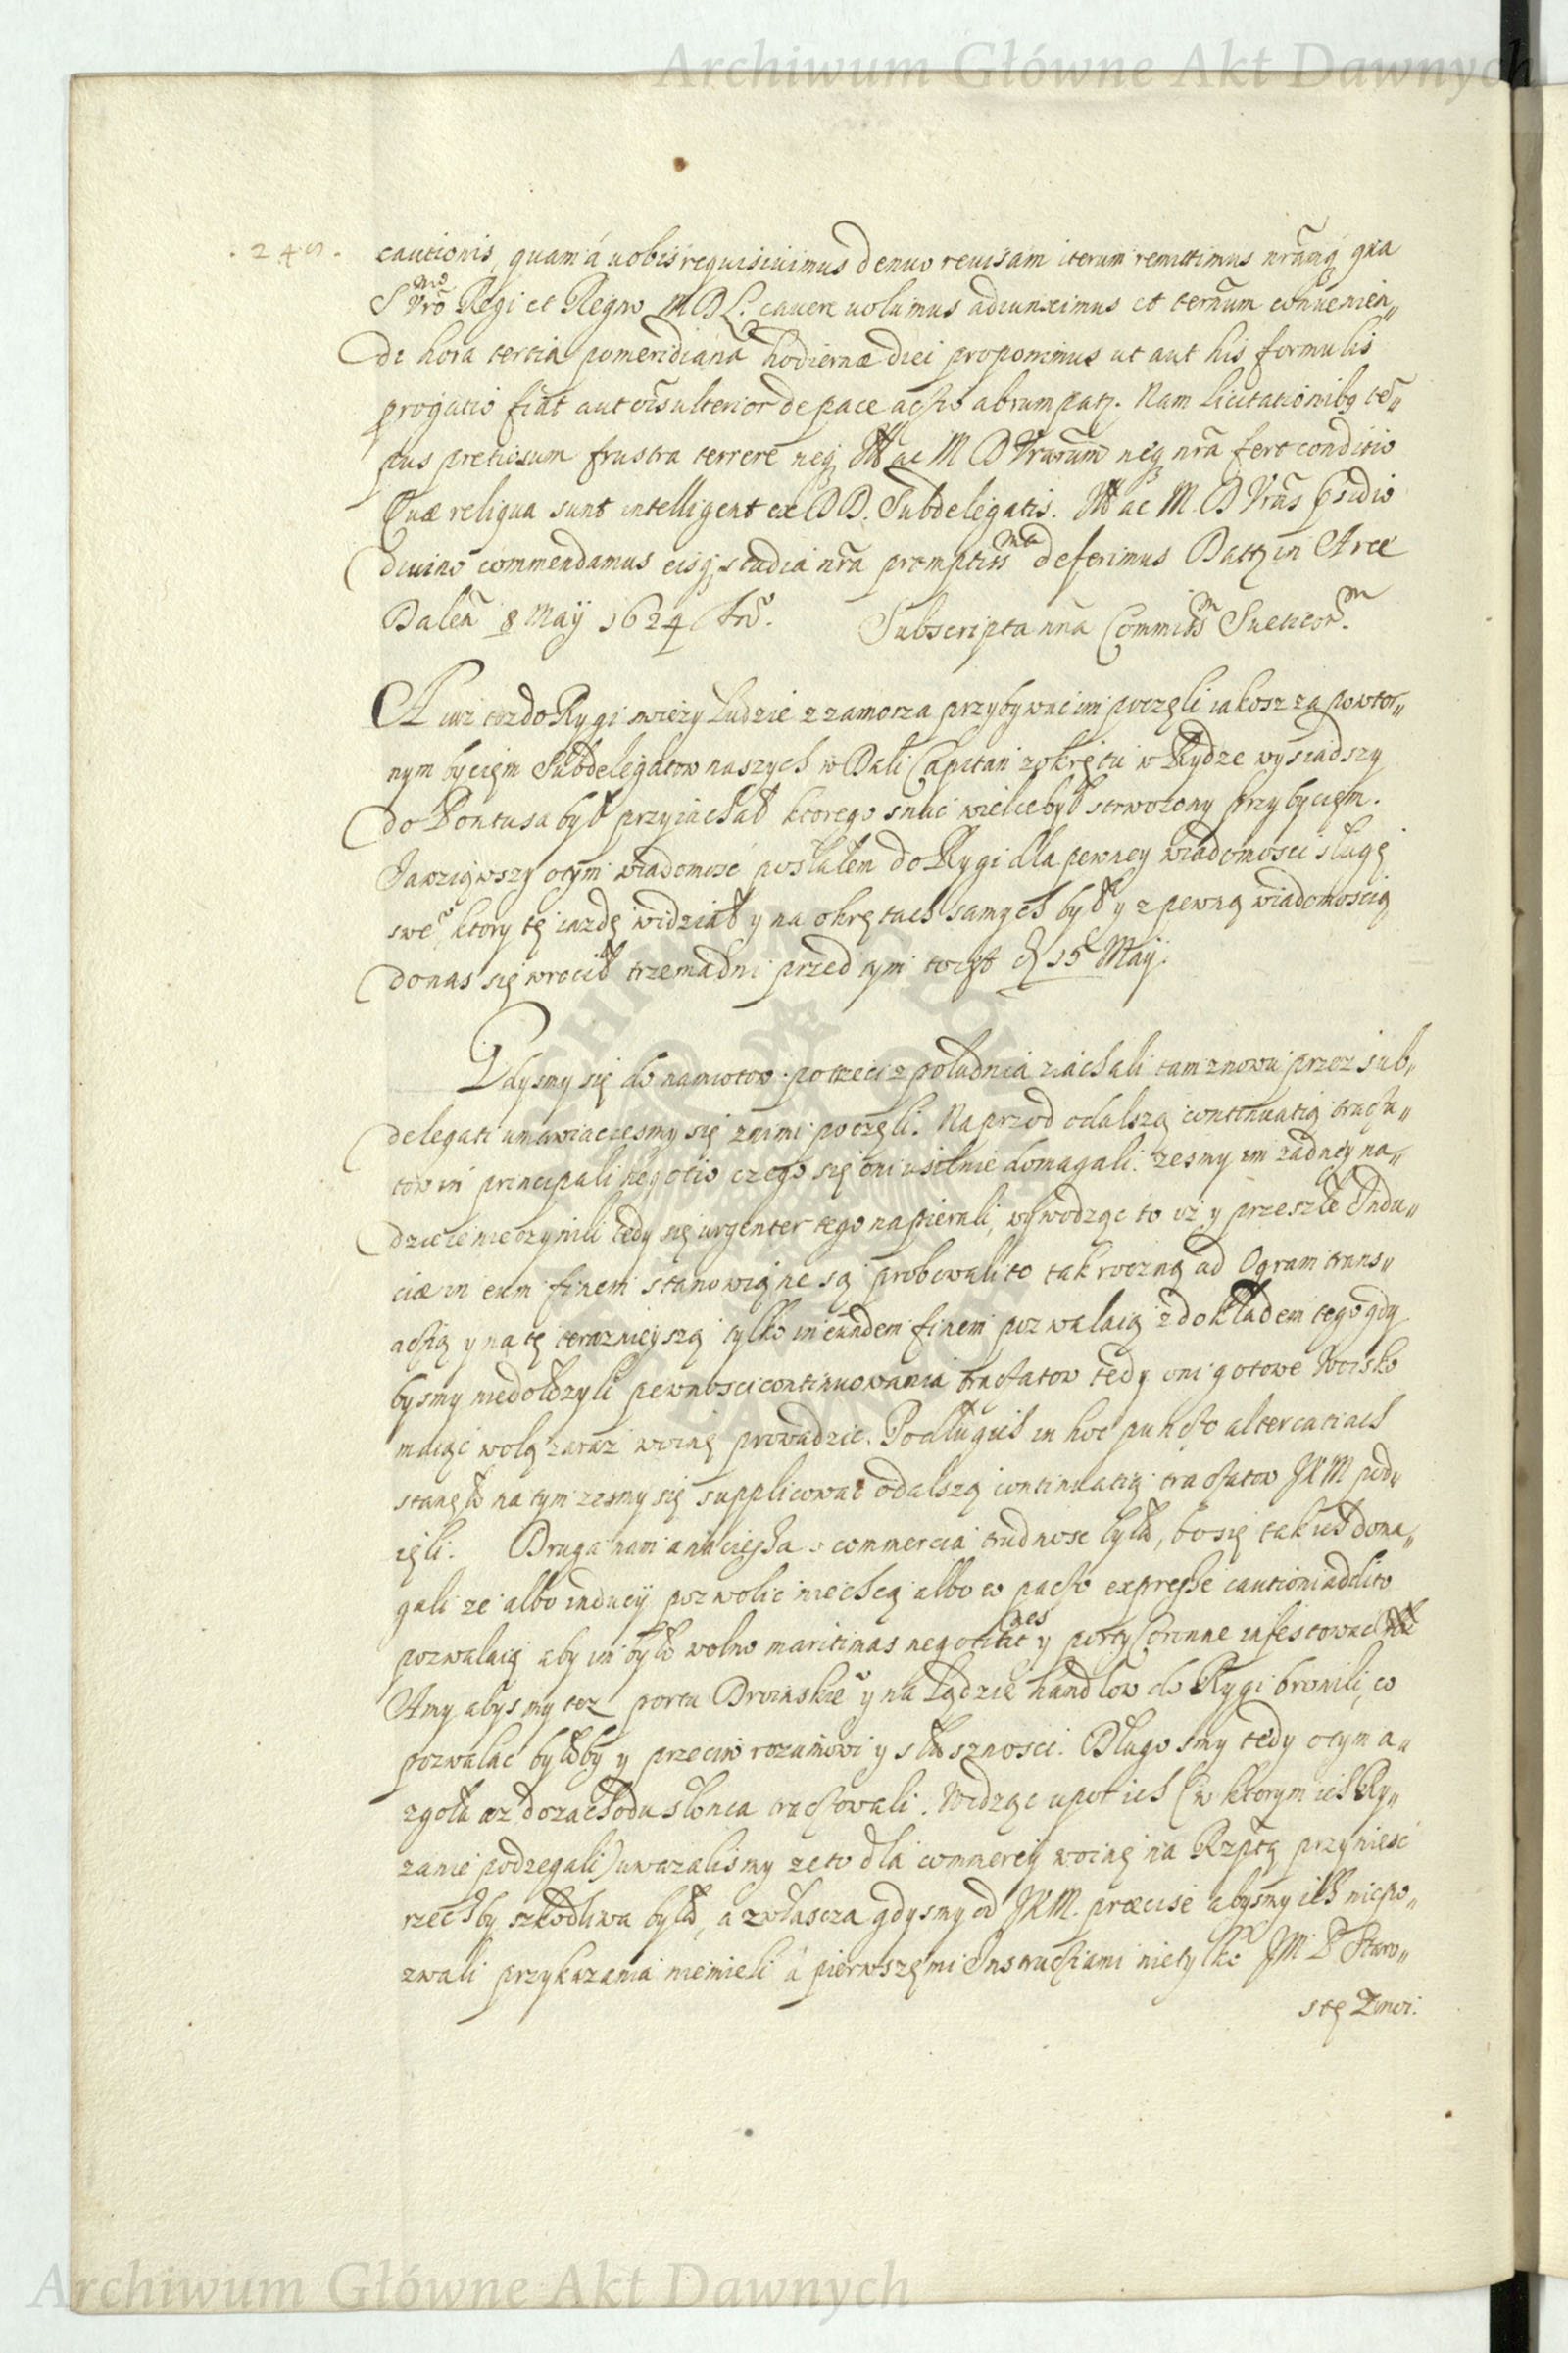 Archiwum Główne Akt Dawnych
. 245 .
cautionis, quam á uobis requisiuimus denuo reuisam iterum remittimus nrãmq́ qua
S mo Vrõ Regi et Regno M D L. cauere uolumus adiunximus et ternũm conuenien„
di hora tertia pomeridiana hodiernæ diei proponimus ut aut his formulis
progatio fiat aut oĩs ulterior de pace actio abrumpatʒ. Nam licitationibq tẽ„
pus pretiosum frustra terrere neq ac M D Vrarum neq nrã fert conditio
Quæ reliqua sunt intelligent ex DD. Subdelegatis. ac M. D Vrãs psidio
diuino commendamus eisq studia nrã promptiss ma deferimus Dattʒ in Arce
Dalen 8 Maÿ 1624 Añõ. Subscripta nña Commiss m Sueticor m.
A iuz toz do Rygi swiezy Ludzie z zamorza przybywac im poczęli iakosz za powtor„
nym byciem Subdelegatow naszych w Dali Capitan z okrętu w Rydze wysiadszy
do Pontusa był przyiachał ktorego snac wielce był strwozony przybyciem.
Ja wziąwszy otym wiadomosć posłałem do Rygi dla pewney wiadomosci sługę
swe o, ktory tę iazdę widział y na okrętach samych był y z pewną wiadomoscią
do nas się wrocił trzema dni przed tym to iest d 15 Maÿ.
Gdysmy się do namiotow po trzeci z południa ziachali tam znowu przez sub„
delegati umawiac esmy się z nimi poczęli. Naprzod o dalszą continuatią tracta„
tow in principali negotio czego się oni usilnie domagali. zesmy im zadney na„
dzieie nie czynili tedy się urgenter tego napierali, wywodząc to iz y przeszłe Indu„
ciæ in eum finem stanowione są probowali to tak roczną ad Ogram trans„
actią y na tę teraznieyszą tylko in eundem finem pozwalaią z dokładem tego gdy
bysmy niedołozyli pewnosci continuowania tractatow tedy oni gotowe Woisko
maiąc wolą zaraz woinę prowadzic. Po długich in hoc puncto altercatiach
stanęło na tym zesmy się supplicowac o dalszą continuatią tractatow JKM pod„
ięli. Druga nam a nacięsha o commercia trudnosc była, bo się tak ich doma„
gali ze albo inducij pozwolic niechcą albo w pacto expresse cautioni addito
pozwalaią aby im było wolno maritimas negotiationes y porty Corinne infestowac
Amy abysmy tez portu Drwinskie o y na Lądzie handlow do Rygi bronili, co
pozwalac byłoby y przeciw rozumowi y słusznosci. Długo smy tedy otym a„
zgoła az do zachodu słonca tractowali. Widząc upor ich (w ktorym ich Ry„
zanie podzegali) uwazalismy ze to dla commercij woinę na Rzptą przyniesć
rzecz by szkodliwa była, a zwłascza gdysmy od JKM. præcise abysmy ich niepo„
zwali przykazania niemieli á pierwszęmi Instructiami nietylko JM P Staro„
stę Zmoi:
Archiwum Główne Akt Dawnych